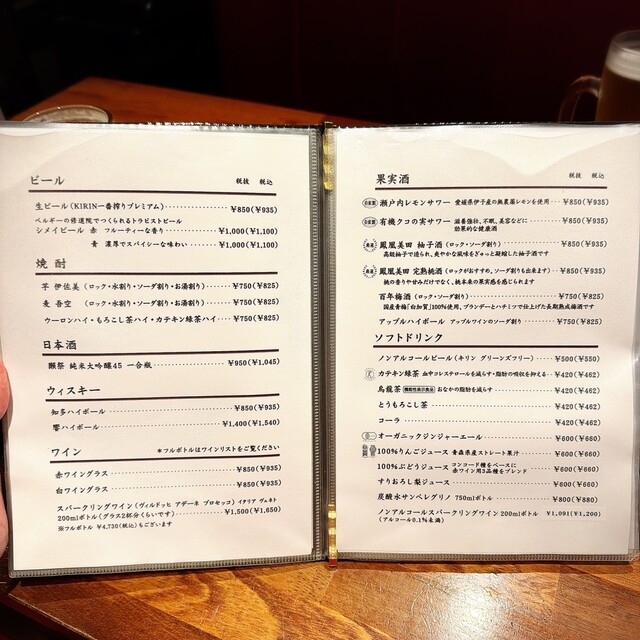 ビール 税抜 税込
生ビール(KIRIN一番搾りプレミアム)……¥850(¥935)
ベルギーの修道院でつくられるトラピストビール
シメイビール 赤 フルーティーな香り……¥1,000(¥1,100)
青 濃厚でスパイシーな味わい……¥1,000(¥1,100)
焼酎
芋 伊佐美(ロック・水割り・ソーダ割り・お湯割り)……¥750(¥825)
麦 吾空 (ロック・水割り・ソーダ割り・お湯割り)……¥750(¥825)
ウーロンハイ・もろこし茶ハイ・カテキン緑茶ハイ……¥750(¥825)
日本酒
獺祭 純米大吟醸45 一合瓶……¥950(¥1,045)
ウィスキー
知多ハイボール……¥850(¥935)
響ハイボール……¥1,400(¥1,540)
ワイン *フルボトルはワインリストをご覧ください
赤ワイングラス……¥850(¥935)
白ワイングラス……¥850(¥935)
スパークリングワイン(ヴィルドッヒ アデーネ プロセッコ)イタリア ヴェネト
200mlボトル(グラス2杯分くらいです)……¥1,500(¥1,650)
※フルボトル ¥4,730(税込)もございます
果実酒 税抜 税込
自家製 瀬戸内レモンサワー 愛媛県伊予産の無農薬レモンを使用……¥850(¥935)
自家製 有機クコの実サワー 滋養強壮、不眠、美容などに……¥850(¥935)
効果的な健康酒
鳳凰美田 柚子酒(ロック・ソーダ割り)……¥850(¥935)
高級柚子で造られ、爽やかな風味をぎゅっと凝縮した柚子酒です
鳳凰美田 完熟桃酒(ロックがおすすめ、ソーダ割りも出来ます)……¥850(¥935)
桃の香りや甘みだけでなく、桃本来の果実感を感じられます
百年梅酒(ロック・ソーダ割り)……¥750(¥825)
国産青梅「白加賀」100%使用、ブランデーとハチミツで仕上げた長期熟成梅酒です
アップルハイボール アップルワインのソーダ割り……¥750(¥825)
ソフトドリンク
ノンアルコールビール(キリン グリーンズフリー)……¥500(¥550)
カテキン緑茶 血中コレステロールを減らす・脂肪の吸収を抑える……¥420(¥462)
烏龍茶 機能性表示食品 おなかの脂肪を減らす……¥420(¥462)
とうもろこし茶……¥420(¥462)
コーラ……¥420(¥462)
オーガニックジンジャーエール……¥600(¥660)
100%りんごジュース 青森県産ストレート果汁……¥600(¥660)
100%ぶどうジュース コンコード種をベースに……¥600(¥660)
赤ワイン用3品種をブレンド
すりおろし梨ジュース……¥600(¥660)
炭酸水サンペレグリノ 750mlボトル……¥800(¥880)
ノンアルコールスパークリングワイン 200mlボトル……¥1,091(¥1,200)
(アルコール0.1%未満)